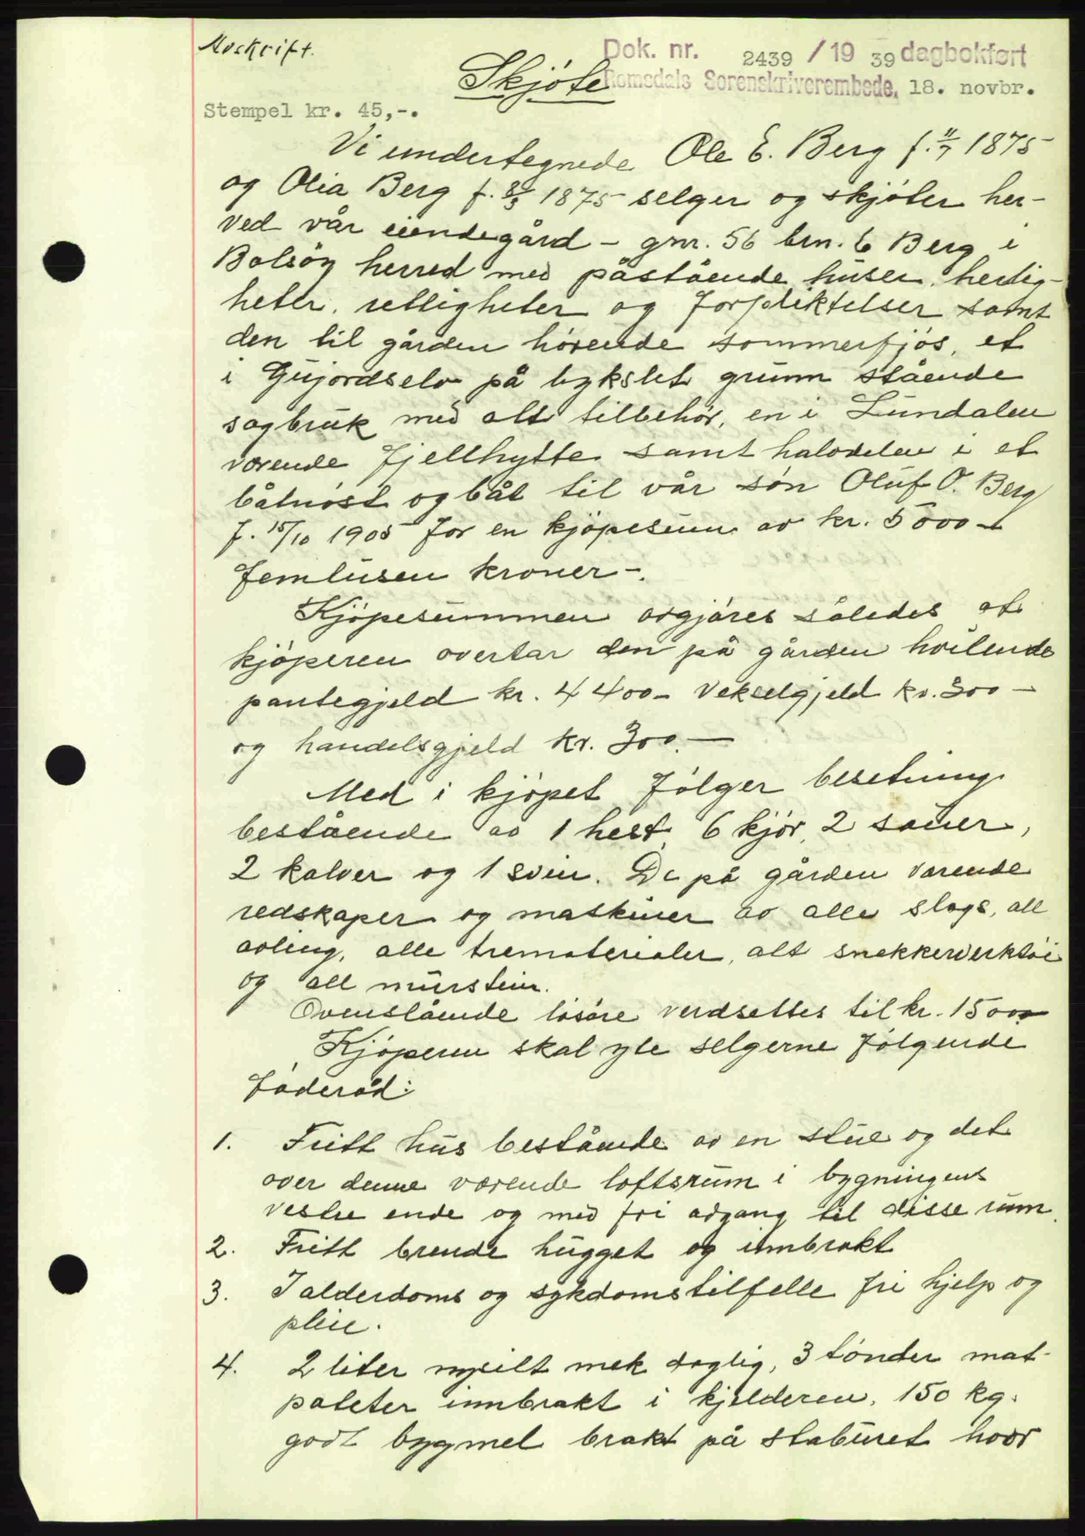 Avskrift.
Dok. nr. 2439 / 19 39 dagbokført
Skjöte
Romsdals Sorenskriverembede, 18. novbr.
Stempel kr. 45,-.
Vi undertegnede Ole E. Berg f. 11/7 1875
og Olia Berg f. 8/3 1875 selger og skjöter her-
ved vår eiendegård - gnr. 56 brn. 6 Berg i
Bolsöy herred med påstående huser, herlig-
heter, rettigheter og forpliktelser samt
den til gården hörende sommerfjös, et
i Gujordselv på bykslet grunn stående
sagbruk med alt tilbehör, en i Lundalen
værende fjellhytte samt halvdelen i et
båtnöst og båt til vår sön Oluf O. Berg
f. 15/10 1905 for en kjöpesum av kr. 5000-
femtusen kroner-.
Kjöpesummen avgjöres således at
kjöperen overtar den på gården hvilende
pantegjeld kr. 4400- vekselgjeld kr. 300-
og handelsgjeld kr. 300.-
Med i kjöpet fölger besetning
bestående av 1 hest, 6 kjör, 2 sauer,
2 kalver og 1 svin. De på gården værende
redskaper og maskiner av alle slags, all
avling, alle trematerialer, alt snekkerverktöi
og all murstein.
Ovenstående lösöre verdsettes til kr. 1500
Kjöperen skal yte selgerne fölgende
föderåd:
1. Fritt hus bestående av en stue og det
over denne værende loftsrum i bygningens
vestre ende og med fri adgang til disse rum.
2. Fritt brende hugget og innbrakt
3. I alderdoms og sykdomstilfelle fri hjelp og
pleie.
4. 2 liter nysilt melk daglig, 3 tönder mat-
poteter innbrakt i kjelderen, 150 kg.
godt bygmel brakt på staburet hvor